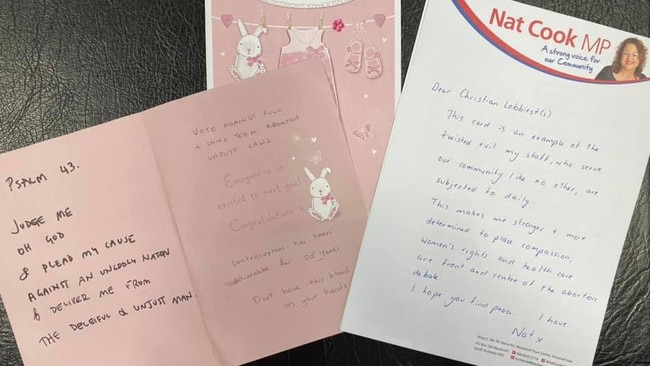 PSALM 43.
JUDGE ME
OH GOD
& PLEAD MY CAUSE
AGAINST AN UNGODLY NATION
& DELIVER ME FROM
THE DECEIFUL & UNJUST MAN
VOTE AGAINST FULL
& LONG TERM ABORTION
UNJUST LAWS
Everyone is so
excited to meet you!
Congratulations
Contraception has been
available for 50 years
Dont have this blood
on your hands
Nat Cook MP
A strong voice for
our Community
Dear Christian Lobbiest(s)
This card is an example of the
twisted evil my staff, who serve
our community like no other, are
subjected to daily.
This makes me stronger & more
determined to place compassion,
women's rights and health care
are front and centre of the abortion
debate.
I hope you find peace. I have
Nat x